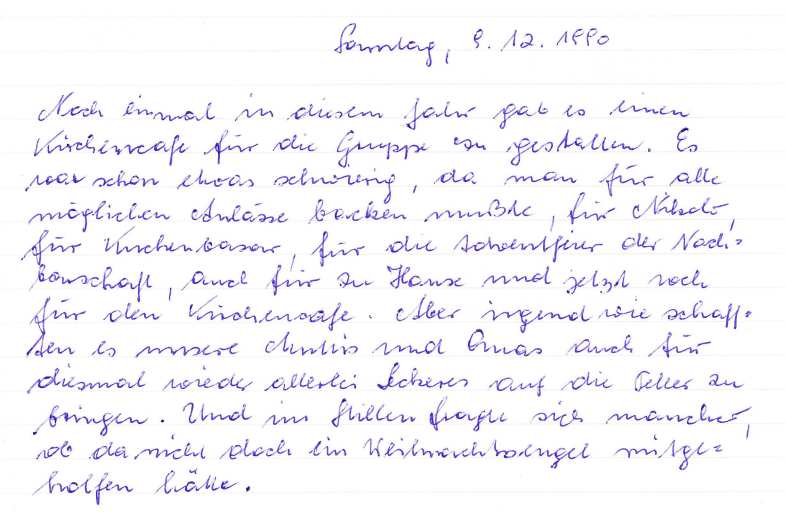 Sonntag, 9.12.1990
Noch einmal in diesem Jahr gab es einen
Kirchencafe für die Gruppe zu gestalten. Es
war schon etwas schwierig, da man für alle
möglichen Anlässe backen mußte, für Nikolo,
für Kuchenbasar, für die Adventfeier der Nach=
barschaft, auch für zu Hause und jetzt noch
für den Kirchencafe. Aber irgend wie schaff=
ten es unsere Muttis und Omas auch für
diesmal wieder allerlei Leckeres auf die Teller zu
bringen. Und im Stillen fragte sich mancher,
ob da nicht doch ein Weihnachtsengel mitge=
holfen hätte.